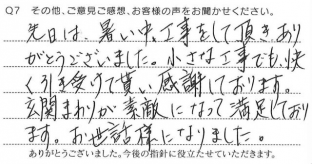 Q7 その他、ご意見ご感想、お客様の声をお聞かせください。
先日は、暑い中、工事をして頂き、あり
がとうございました。小さな工事でも、快
く引き受けて貰い感謝しております。
玄関まわりが素敵になって満足しており
ます。お世話様になりました。
ありがとうございました。今後の指針に役立たせていただきます。